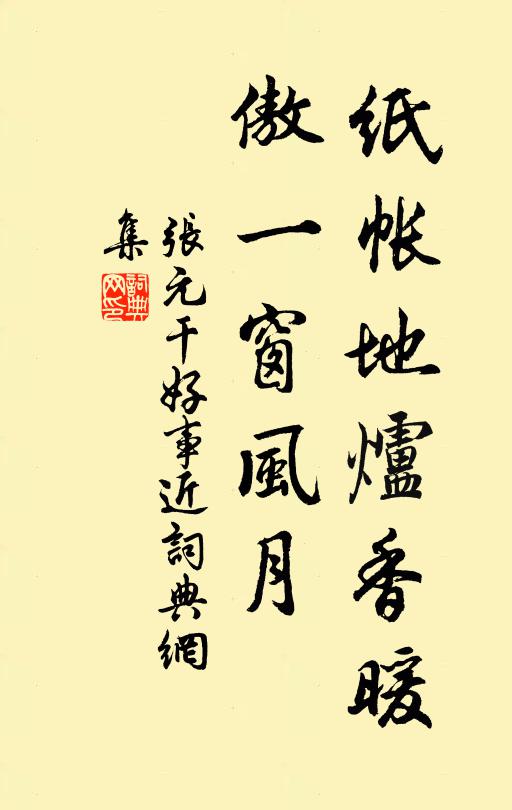 紙帳地爐香暖
傲一窗風月
張元干好事近詞典網
集
詞典
网印